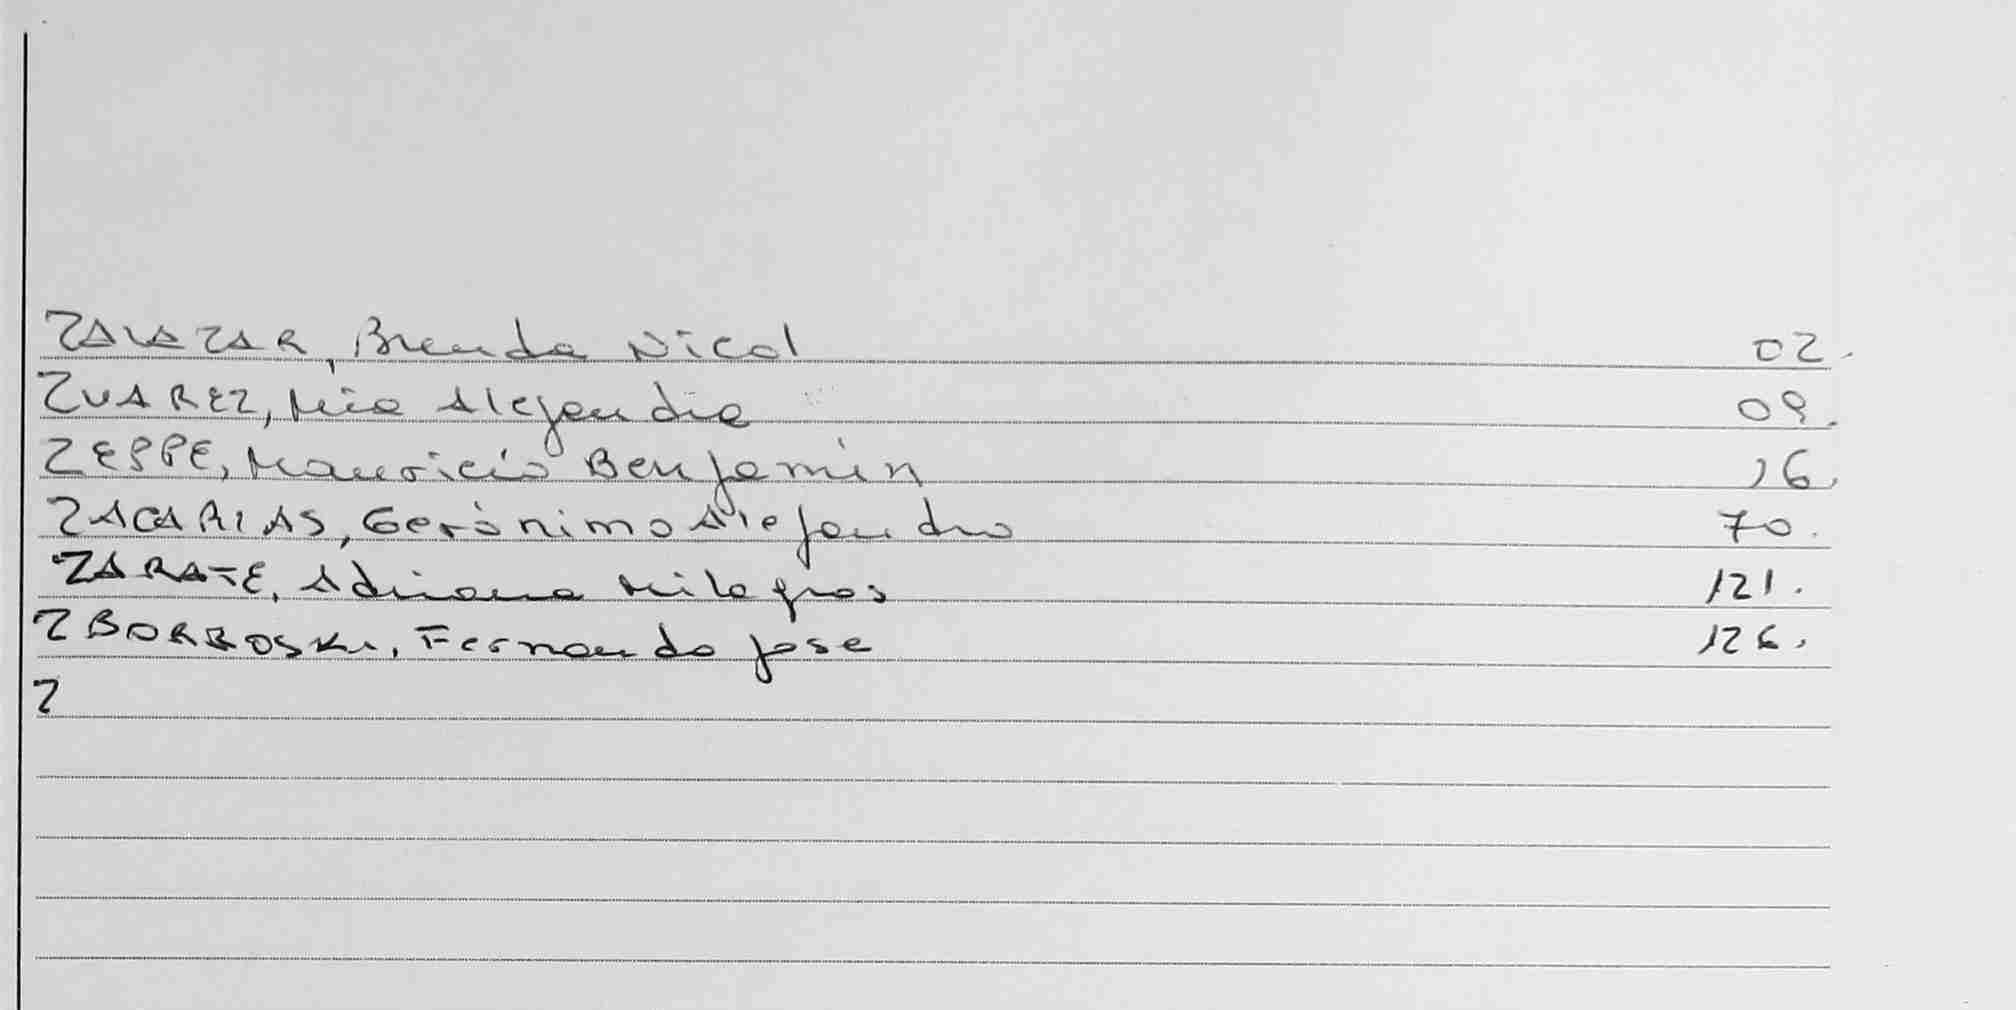 ZALAZAR, Brenda Nicol 02.
ZUAREZ, Mía Alejandra 09.
ZEPPE, Mauricio Benjamín 16.
ZACARIAS, Gerónimo Alejandro 70.
ZARATE, Adriana Milagros 121.
ZBORROSKI, Fernando Jose 126.
Z